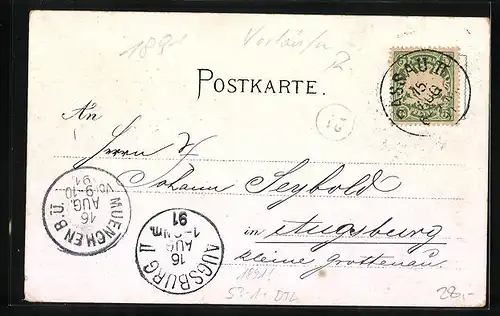 1891 Vorläufer
POSTKARTE.
PASSAU II.
15
AUG
21
An
Herrn
Johann Seybold
in Augsburg
kleine Grottenau.
MUENCHEN B.II.
16
AUG.
VO. 9-10
91
AUGSBURG II
16
AUG
91
1891
28,-